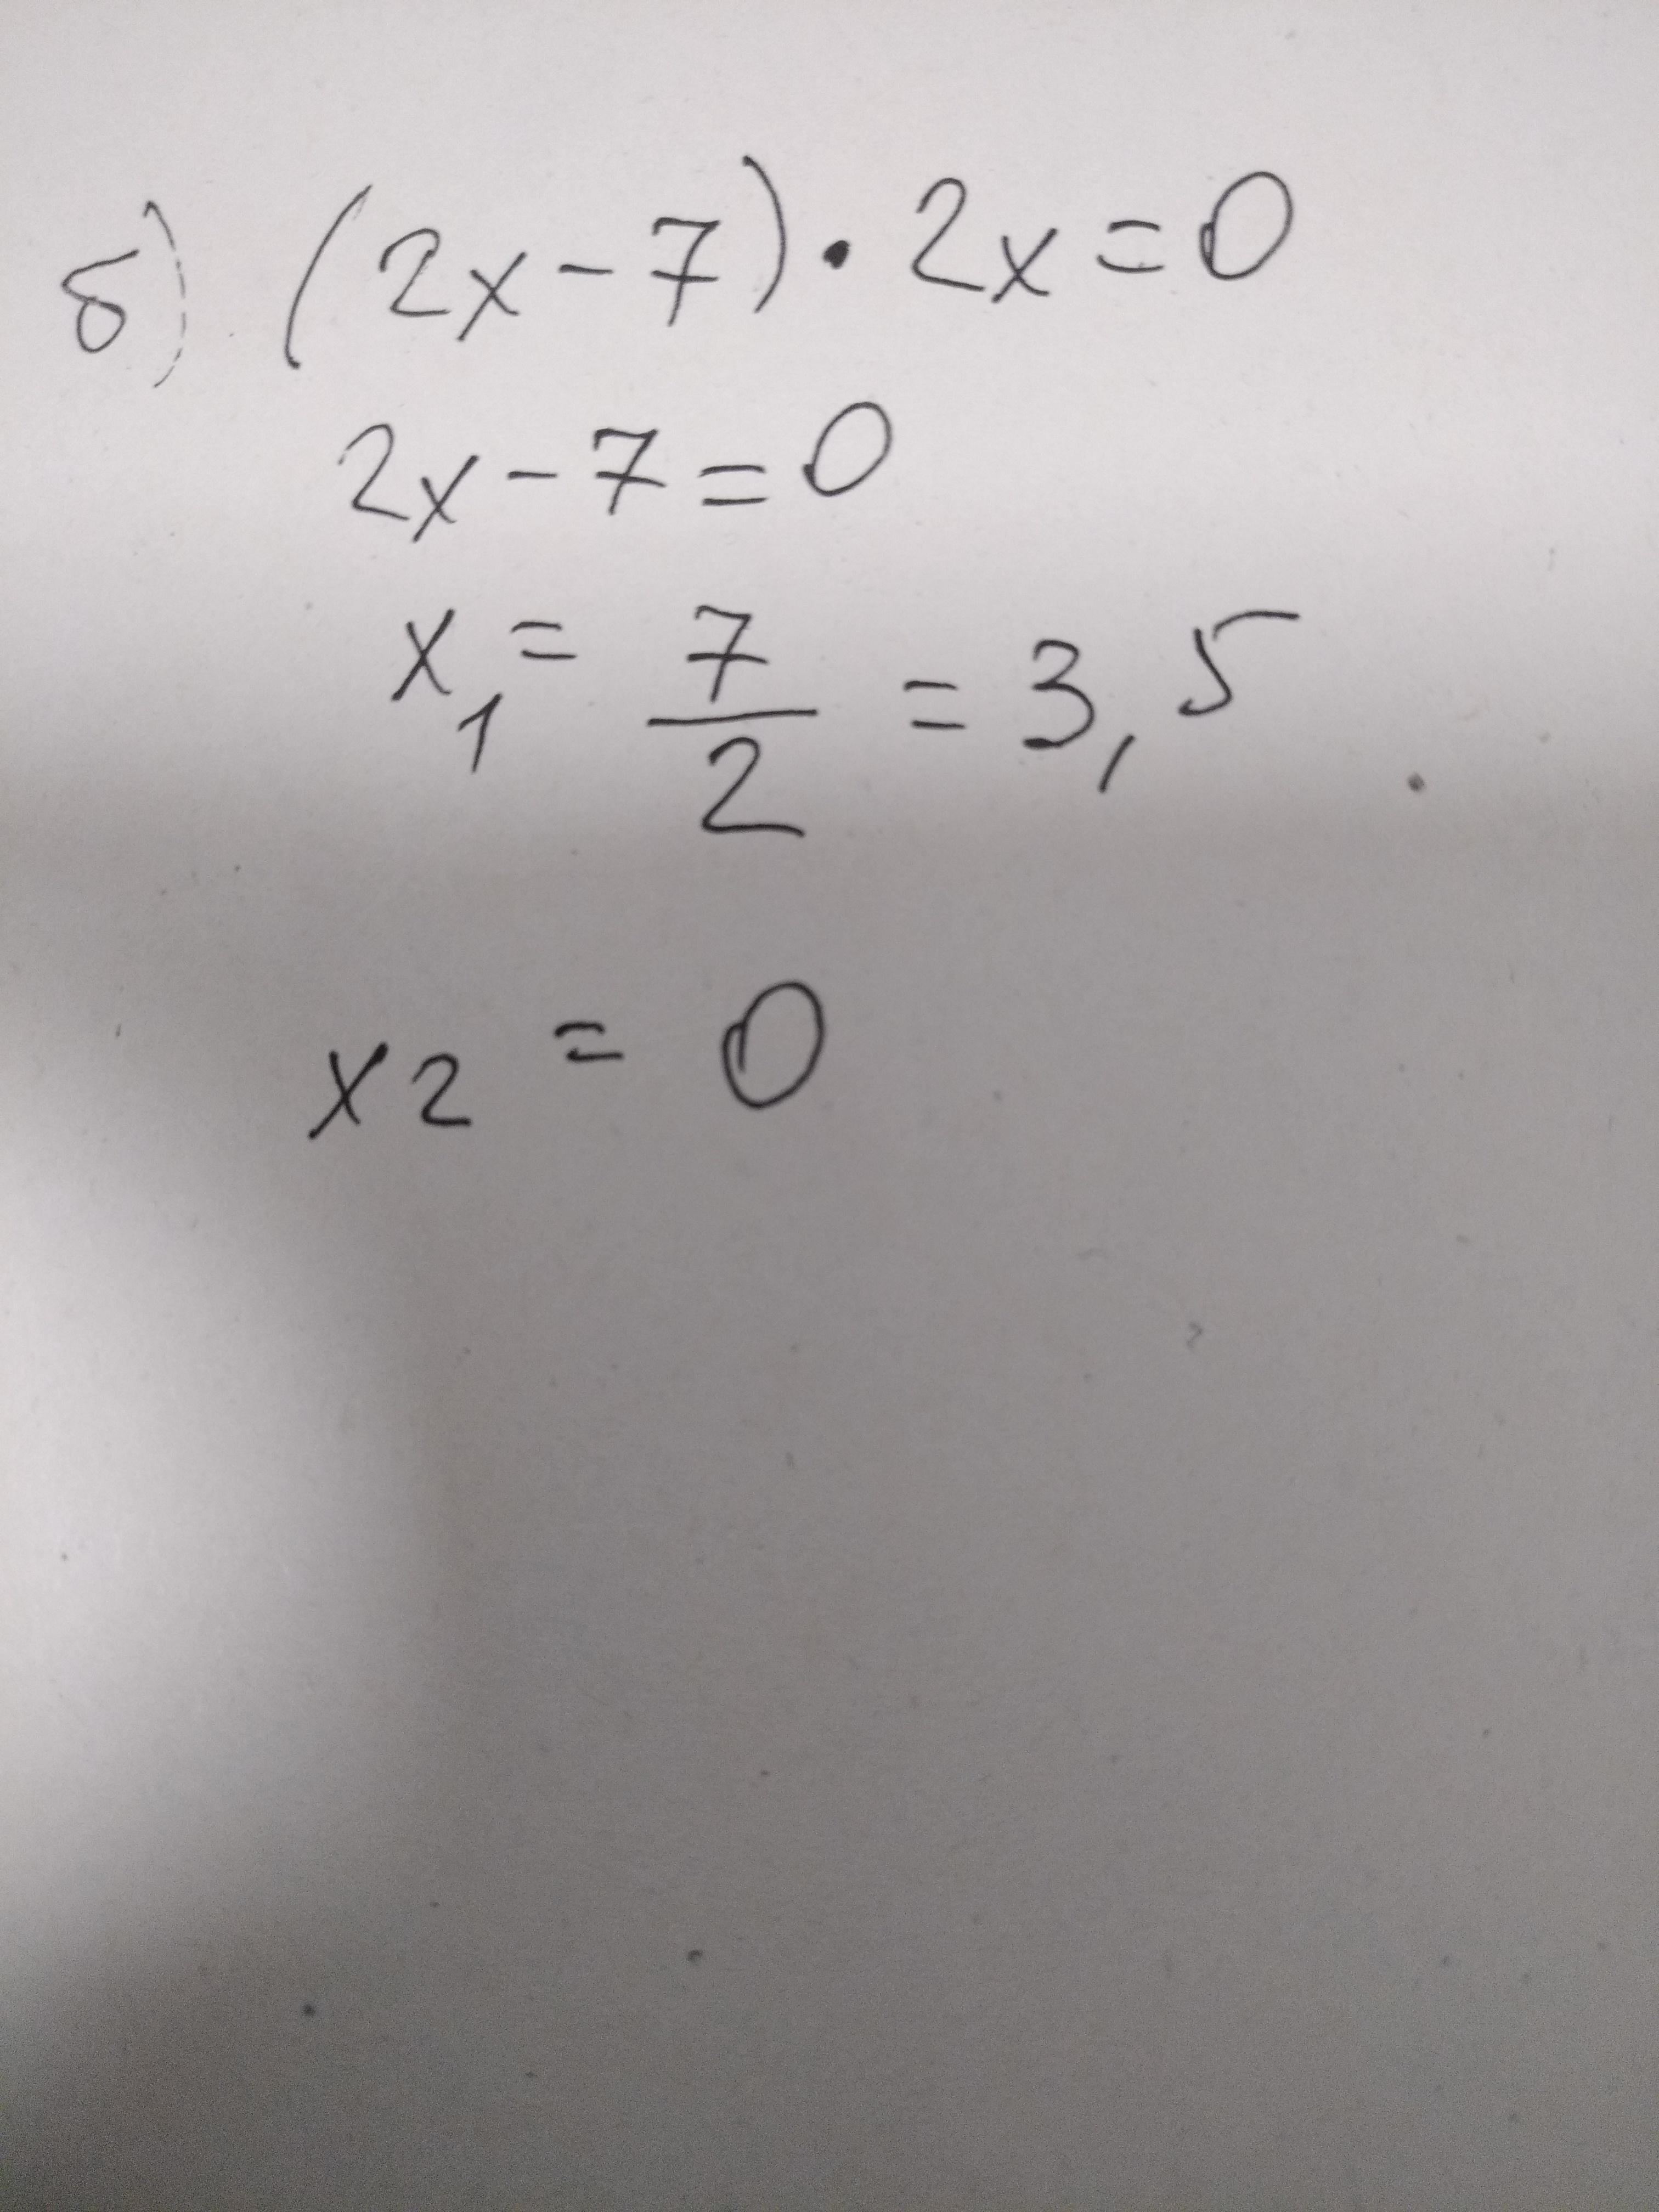 б) (2x-7)·2x=0
2x-7=0
x₁ = 7/2 = 3,5
x2 = 0